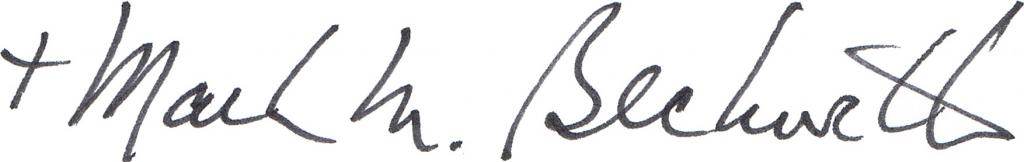 + Mark M. Beckwith